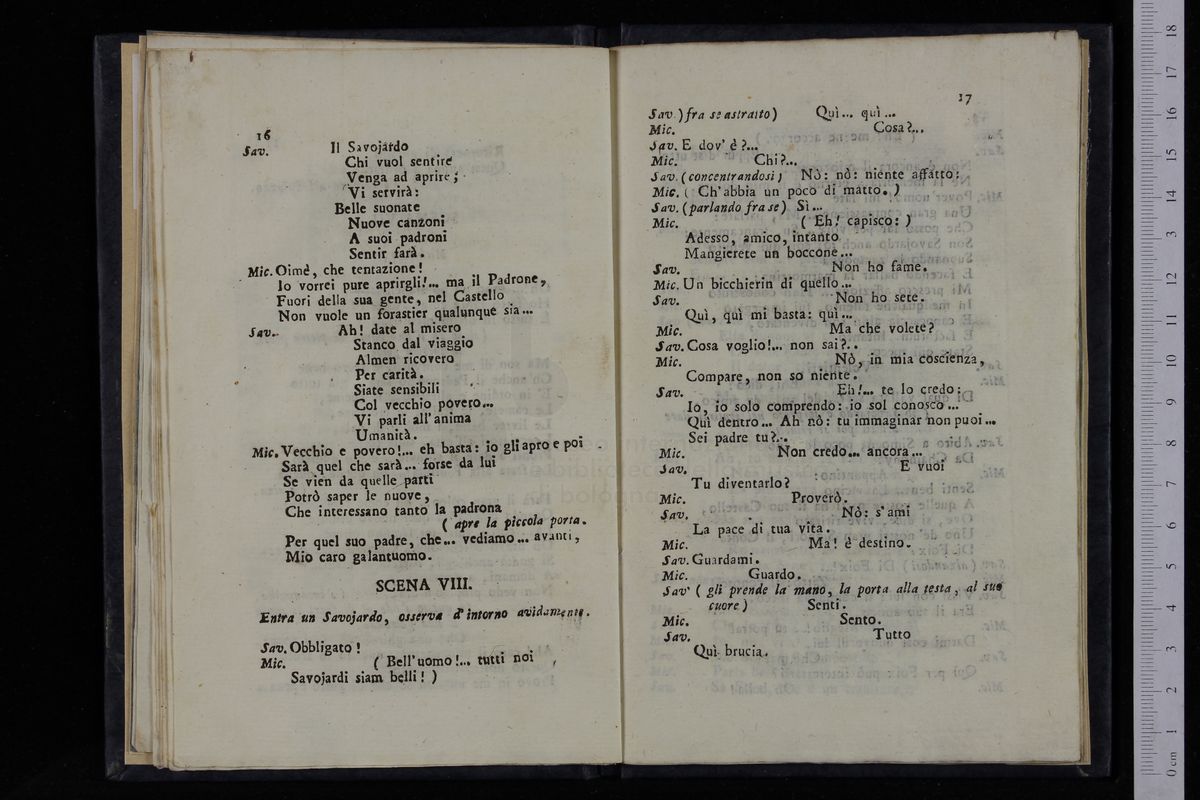 16
Sav. Il Savojardo
Chi vuol sentire
Venga ad aprire;
Vi servirà:
Belle suonate
Nuove canzoni
A suoi padroni
Sentir farà.
Mic. Oimè, che tentazione!
Io vorrei pure aprirgli!... ma il Padrone,
Fuori della sua gente, nel Castello
Non vuole un forastier qualunque sia...
Sav.. Ah! date al misero
Stanco dal viaggio
Almen ricovero
Per carità.
Siate sensibili
Col vecchio povero...
Vi parli all'anima
Umanità.
Mic. Vecchio e povero!... eh basta: io gli apro e poi
Sarà quel che sarà... forse da lui
Se vien da quelle parti
Potrò saper le nuove,
Che interessano tanto la padrona
( apre la piccola porta.
Per quel suo padre, che... vediamo... avanti,
Mio caro galantuomo.
SCENA VIII.
Entra un Savojardo, osserva d'intorno avidamente.
Sav. Obbligato!
Mic. ( Bell'uomo!... tutti noi
Savojardi siam belli! )
17
Sav. )fra se astratto) Quì... quì...
Mic. Cosa?...
Sav. E dov' è?...
Mic. Chi?...
Sav. (concentrandosi) Nò: nò: niente affatto:
Mic. ( Ch'abbia un poco di matto. )
Sav. (parlando fra se) Sì...
Mic. ( Eh! capisco: )
Adesso, amico, intanto
Mangierete un boccone...
Sav. Non ho fame.
Mic. Un bicchierin di quello...
Sav. Non ho sete.
Quì, quì mi basta: quì...
Mic. Ma che volete?
Sav. Cosa voglio!... non sai?..
Mic. Nò, in mia coscienza,
Compare, non so niente.
Sav. Eh!... te lo credo:
Io, io solo comprendo: io sol conosco...
Quì dentro... Ah nò: tu immaginar non puoi...
Sei padre tu?...
Mic. Non credo... ancora...
Sav. E vuoi
Tu diventarlo?
Mic. Proverò.
Sav. Nò: s'ami
La pace di tua vita.
Mic. Ma! è destino.
Sav. Guardami.
Mic. Guardo.
Sav' ( gli prende la mano, la porta alla testa, al suo
cuore ) Senti.
Mic. Sento.
Sav. Tutto
Quì brucia.
0 cm 1 2 3 4 5 6 7 8 9 10 11 12 13 14 15 16 17 18